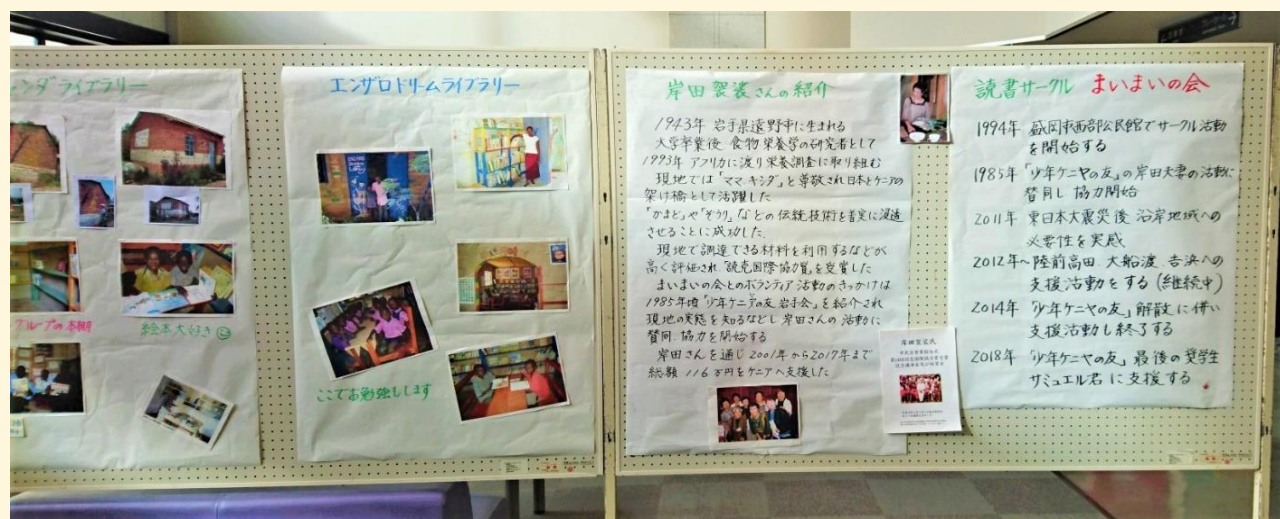 ンダライブラリー
グループの本棚
絵本大好き
エンザロドリームライブラリー
ここでお勉強します
岸田袈裟さんの紹介
1943年 岩手県遠野市に生まれる
大学卒業後 食物栄養学の研究者として
1993年 アフリカに渡り栄養調査に取り組む
現地では「ママ、キシダ」と尊敬され日本とケニアの
架け橋として活躍した
「かまど」や「ぞうり」などの伝統技術を着実に浸透
させることに成功した
現地で調達できる材料を利用するなどが
高く評価され「読売国際協力賞」を受賞した
まいまいの会とのボランティア活動のきっかけは
1985年頃「少年ケニアの友 岩手会」を紹介され
現地の実態を知るなどし 岸田さんの活動に
賛同 協力を開始する
岸田さんを通じ 2001年から2017年まで
総額 116万円をケニアへ支援した
岸田袈裟氏
読書サークル まいまいの会
1994年 盛岡市西部公民館でサークル活動
を開始する
1985年 「少年ケニヤの友」の岸田夫妻の活動に
賛同し 協力開始
2011年 東日本大震災後 沿岸地域への
必要性を実感
2012年~ 陸前高田、大船渡、吉浜への
支援活動をする(継続中)
2014年 「少年ケニヤの友」解散に伴い
支援活動も終了する
2018年 「少年ケニヤの友」最後の奨学生
サミュエル君に支援する